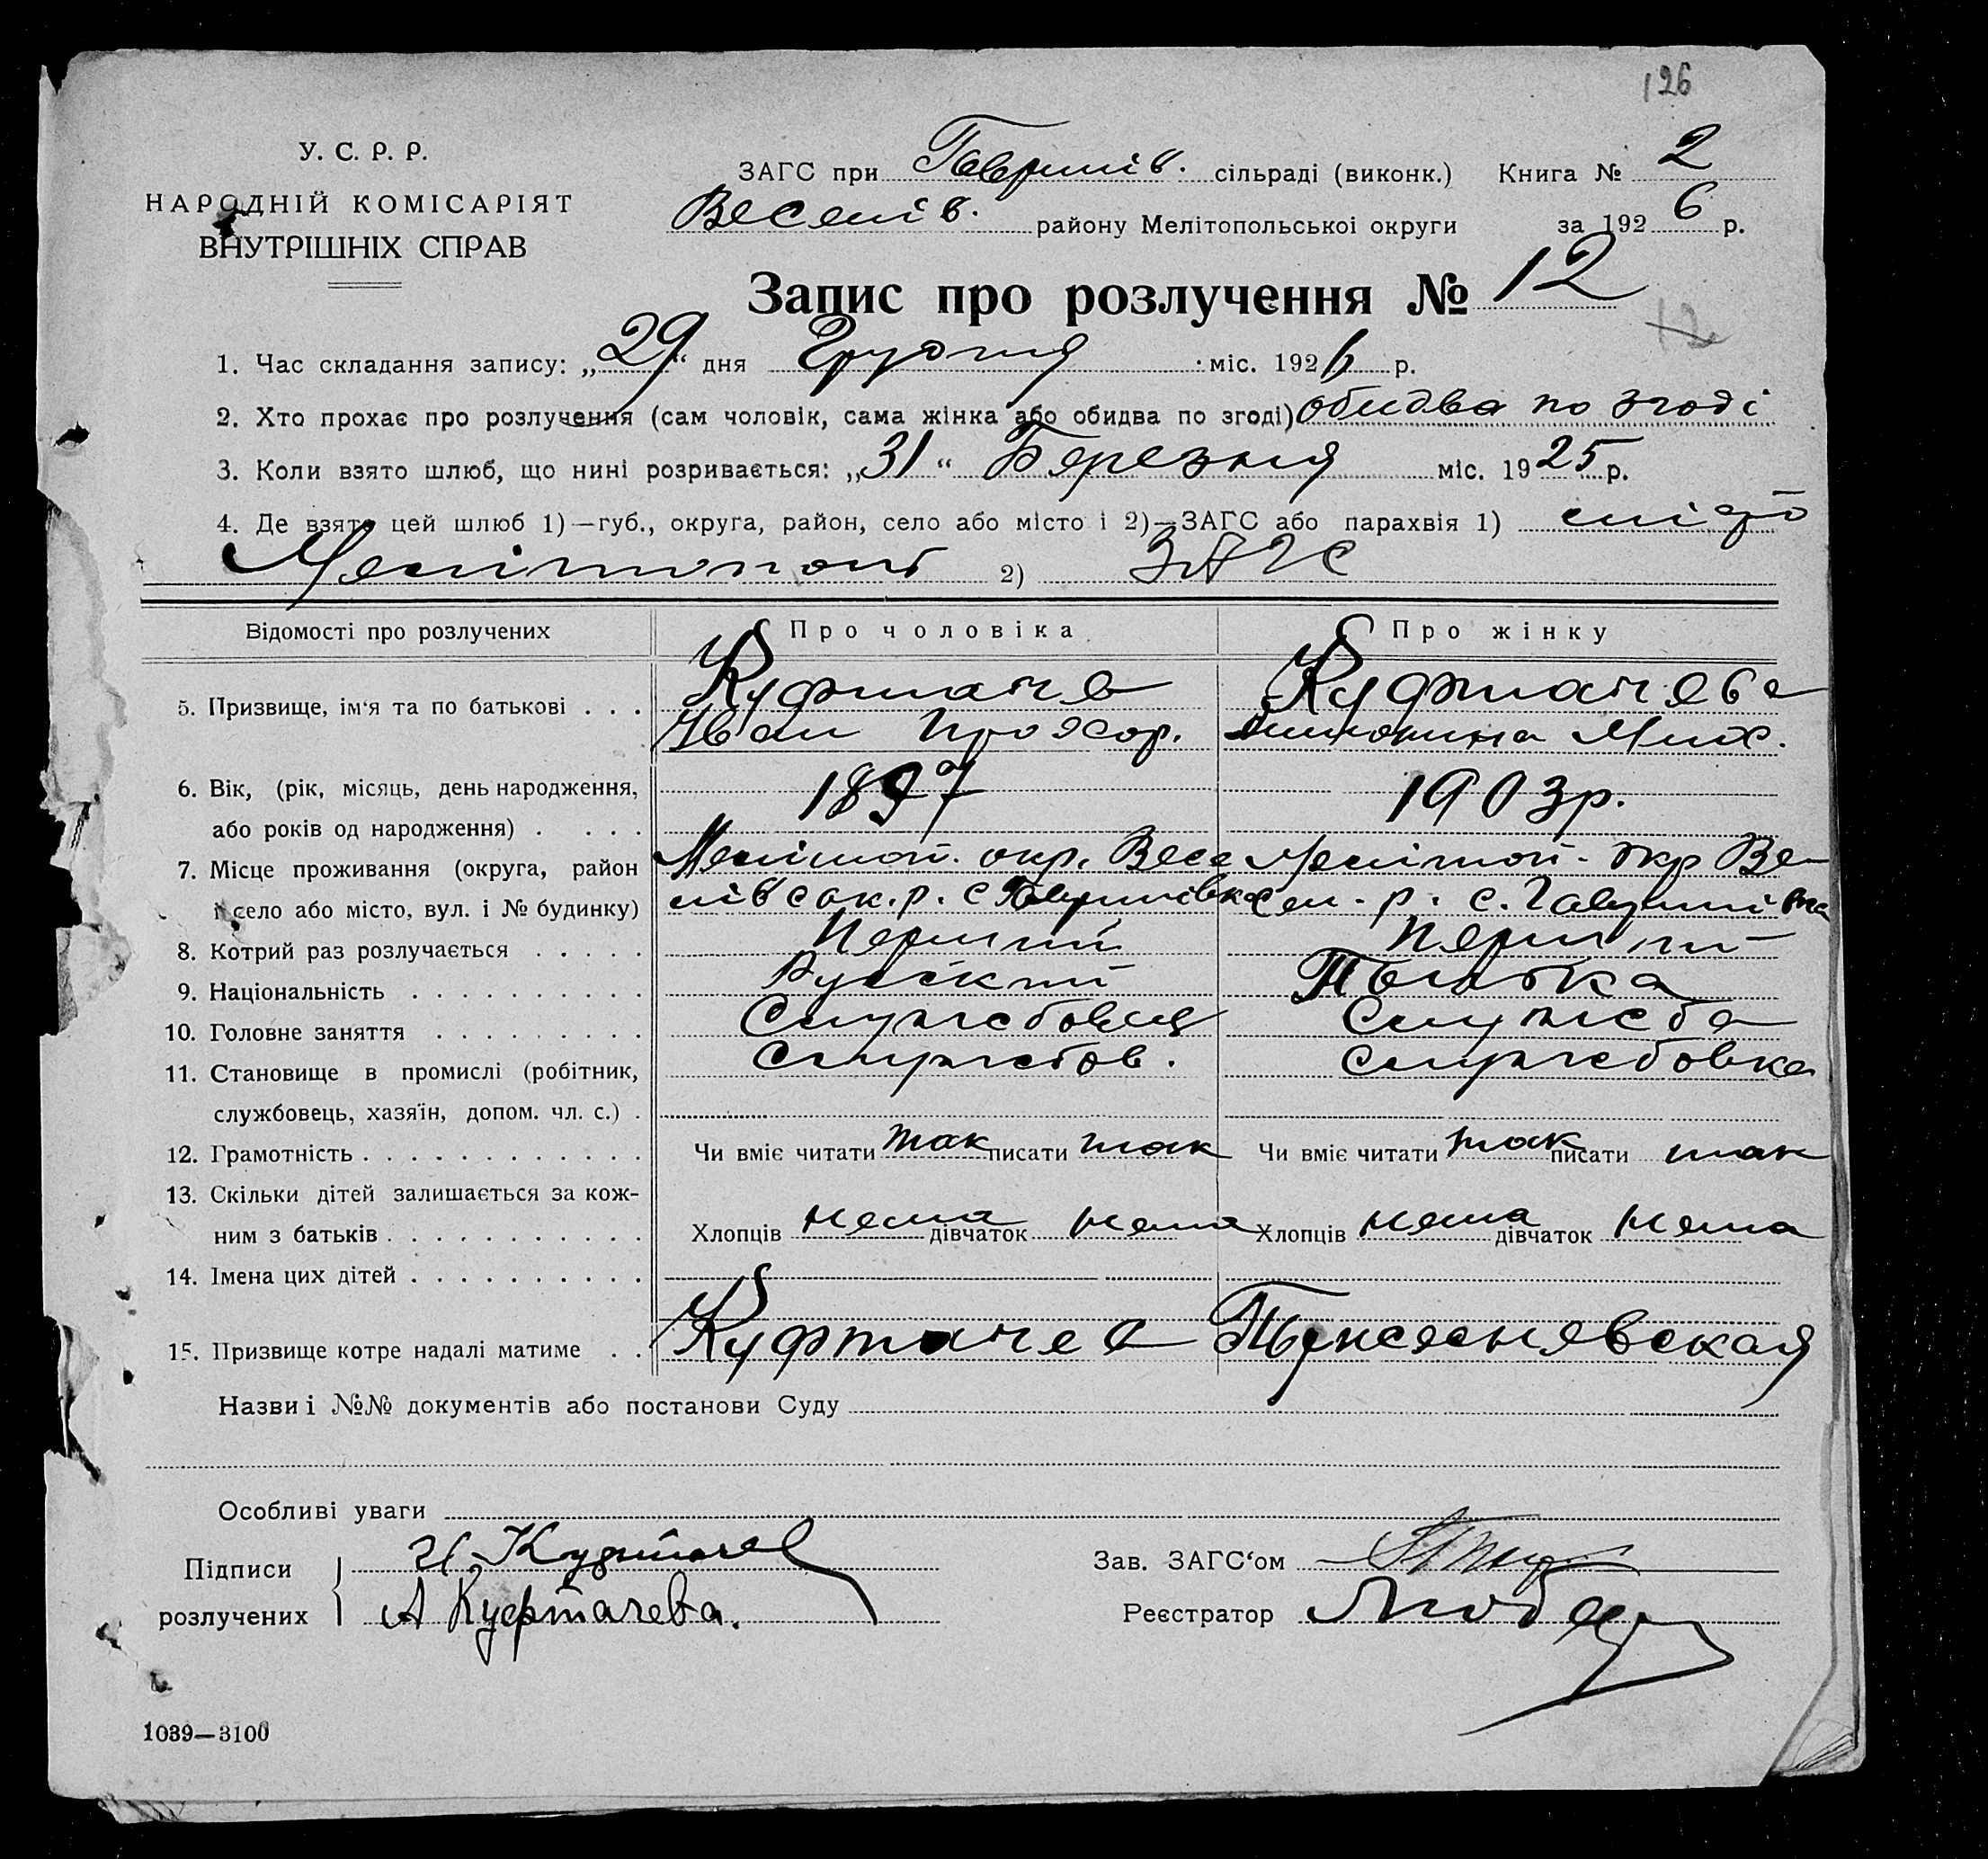 126
У. С. Р. Р.
НАРОДНІЙ КОМІСАРІЯТ
ВНУТРІШНІХ СПРАВ
ЗАГС при Гаврилів. сільраді (виконк.) Книга № 2
Веселів. району Мелітопольськоі округи за 1926 р.
Запис про розлучення № 12
12
1. Час складання запису: „29“ дня Грудня міс. 1926 р.
2. Хто прохає про розлучення (сам чоловік, сама жінка або обидва по згоді) обидва по згоді
3. Коли взято шлюб, що нині розривається: „31“ Березня міс. 1925 р.
4. Де взято цей шлюб 1)—губ., округа, район, село або місто і 2)—ЗАГС або парахвія 1)
Мелітополь 2) ЗАГС
Відомості про розлучених Про чоловіка Про жінку
5. Призвище, ім‘я та по батькові . . . Куфтачев Куфтачева
Іван Прохор. Антонина Мих.
6. Вік, (рік, місяць, день народження,
або років од народження) . . . . 1897 1903 р.
7. Місце проживання (округа, район Мелітоп. окр. Весе Мелітоп. окр Ве-
і село або місто, вул. і № будинку) лівсок. р. с Гаврилівка сел. р. с. Гаврилівка
8. Котрий раз розлучається . . . . . Перший Перший
9. Національність . . . . . . . . . . Руский Полька
10. Головне заняття . . . . . . . . . Службовец Служба
11. Становище в промислі (робітник, Службов. Службовка
службовець, хазяїн, допом. чл. с.) .
12. Грамотність . . . . . . . . . . . . Чи вміє читати так писати так Чи вміє читати так писати так
13. Скільки дітей залишається за кож-
ним з батьків . . . . . . . . . . . Хлопців нема дівчаток нема Хлопців нема дівчаток нема
14. Імена цих дітей . . . . . . . . . .
15. Призвище котре надалі матиме . . Куфтачев
Назви і №№ документів або постанови Суду
Особливі уваги
Підписи
розлучених
И. Куфтачев
А Куфтачева.
Зав. ЗАГС‘ом
Реєстратор
1039—3100